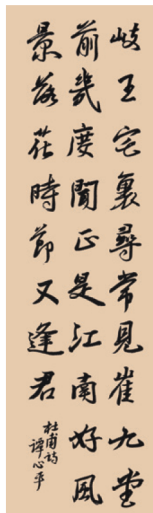 歧王宅裏尋常見崔九堂
前幾度聞正是江南好風
景落花時節又逢君
杜甫詩
譚心平